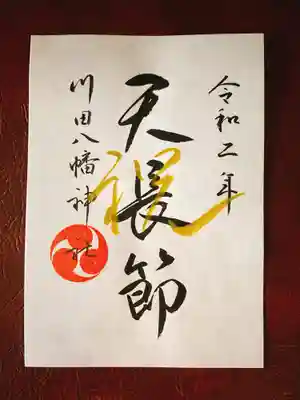 令和二年
天長節
祝
川田八幡神社